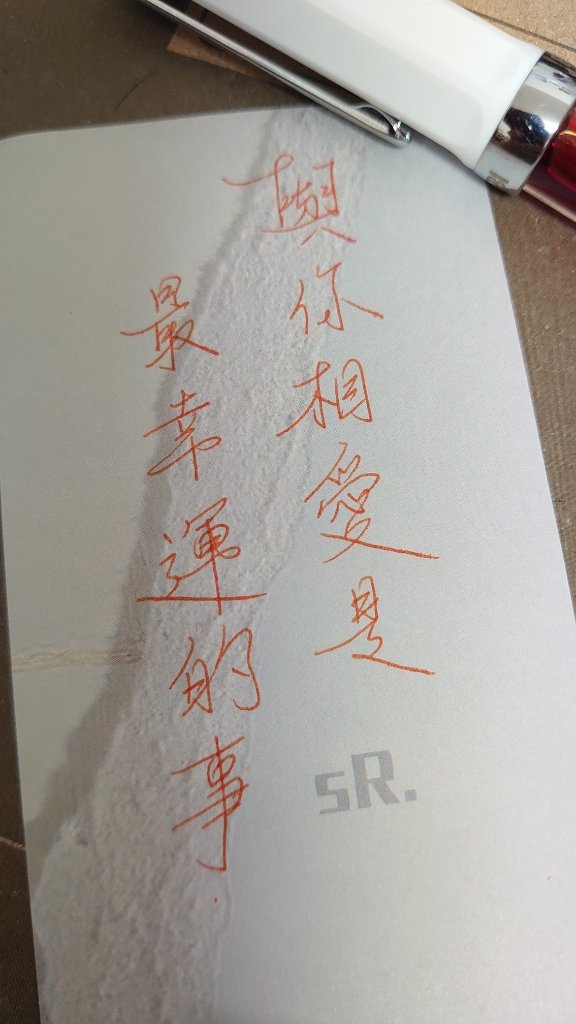 與你相愛是
最幸運的事.
sR.